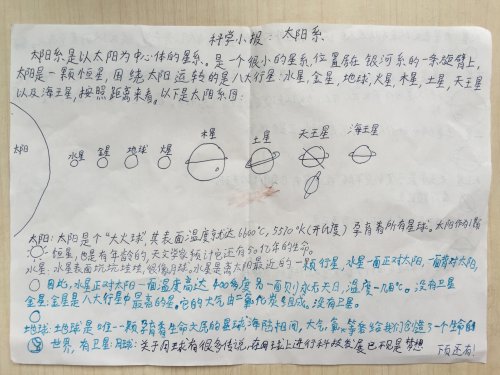 科学小报：太阳系
太阳系是以太阳为中心体的星系。是一个很小的星系，位置居在银河系的一条旋臂上，
太阳是一颗恒星，围绕太阳运转的是八大行星：水星，金星，地球，火星，木星，土星，天王星
以及海王星，按照距离来看。以下是太阳系图：
太阳 水星 金星 地球 火星 木星 土星 天王星 海王星
太阳：太阳是个“大火球”其表面温度就达6000℃，5510°K（开氏度）孕育着所有星球。太阳作为一颗
恒星，也是有年龄的，天文学家统计它还有50亿年的生命。
水星：水星表面坑坑哇哇，很像月球。水星是离太阳最近的一颗行星，水星一面正对太阳，一面背对太阳，
因此，水星正对太阳一面温度高达400多度另一面则永无天日，温度
没有卫星
金星：金星是八大行星中最亮的星。它的大气由二氧化炭组成。没有卫星。
地球：地球是唯一一颗孕育着生命文居的星球，海陆相间，大气，氧，等等给我们创造了一个生命的
世界，有卫星：月球：关于月球有很多传说，在月球上进行科技发展已不只是梦想
下页还有！